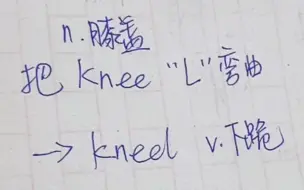 n.膝盖
把 knee "L"弯曲
→ kneel v.下跪